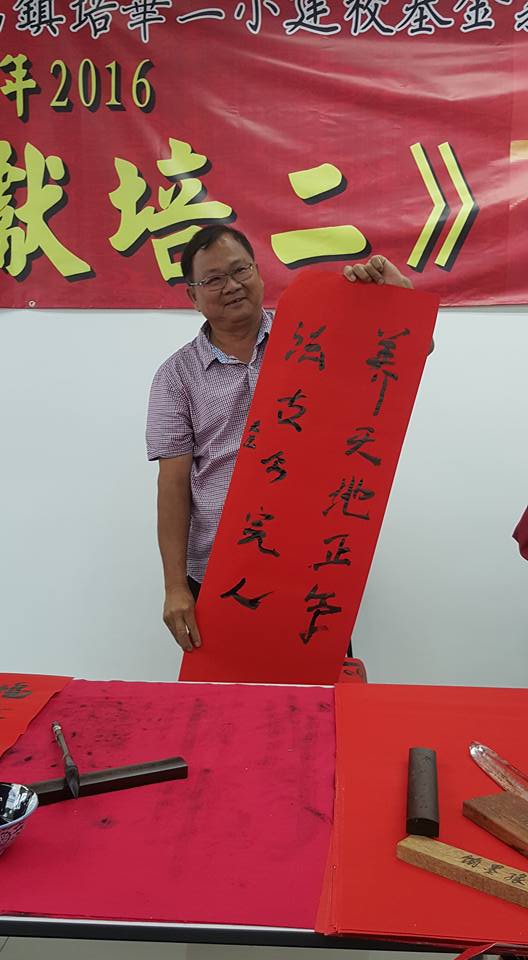 鎮培華二小建校基金
年2016
獻培二》
养天地正气
法古今完人
翰墨